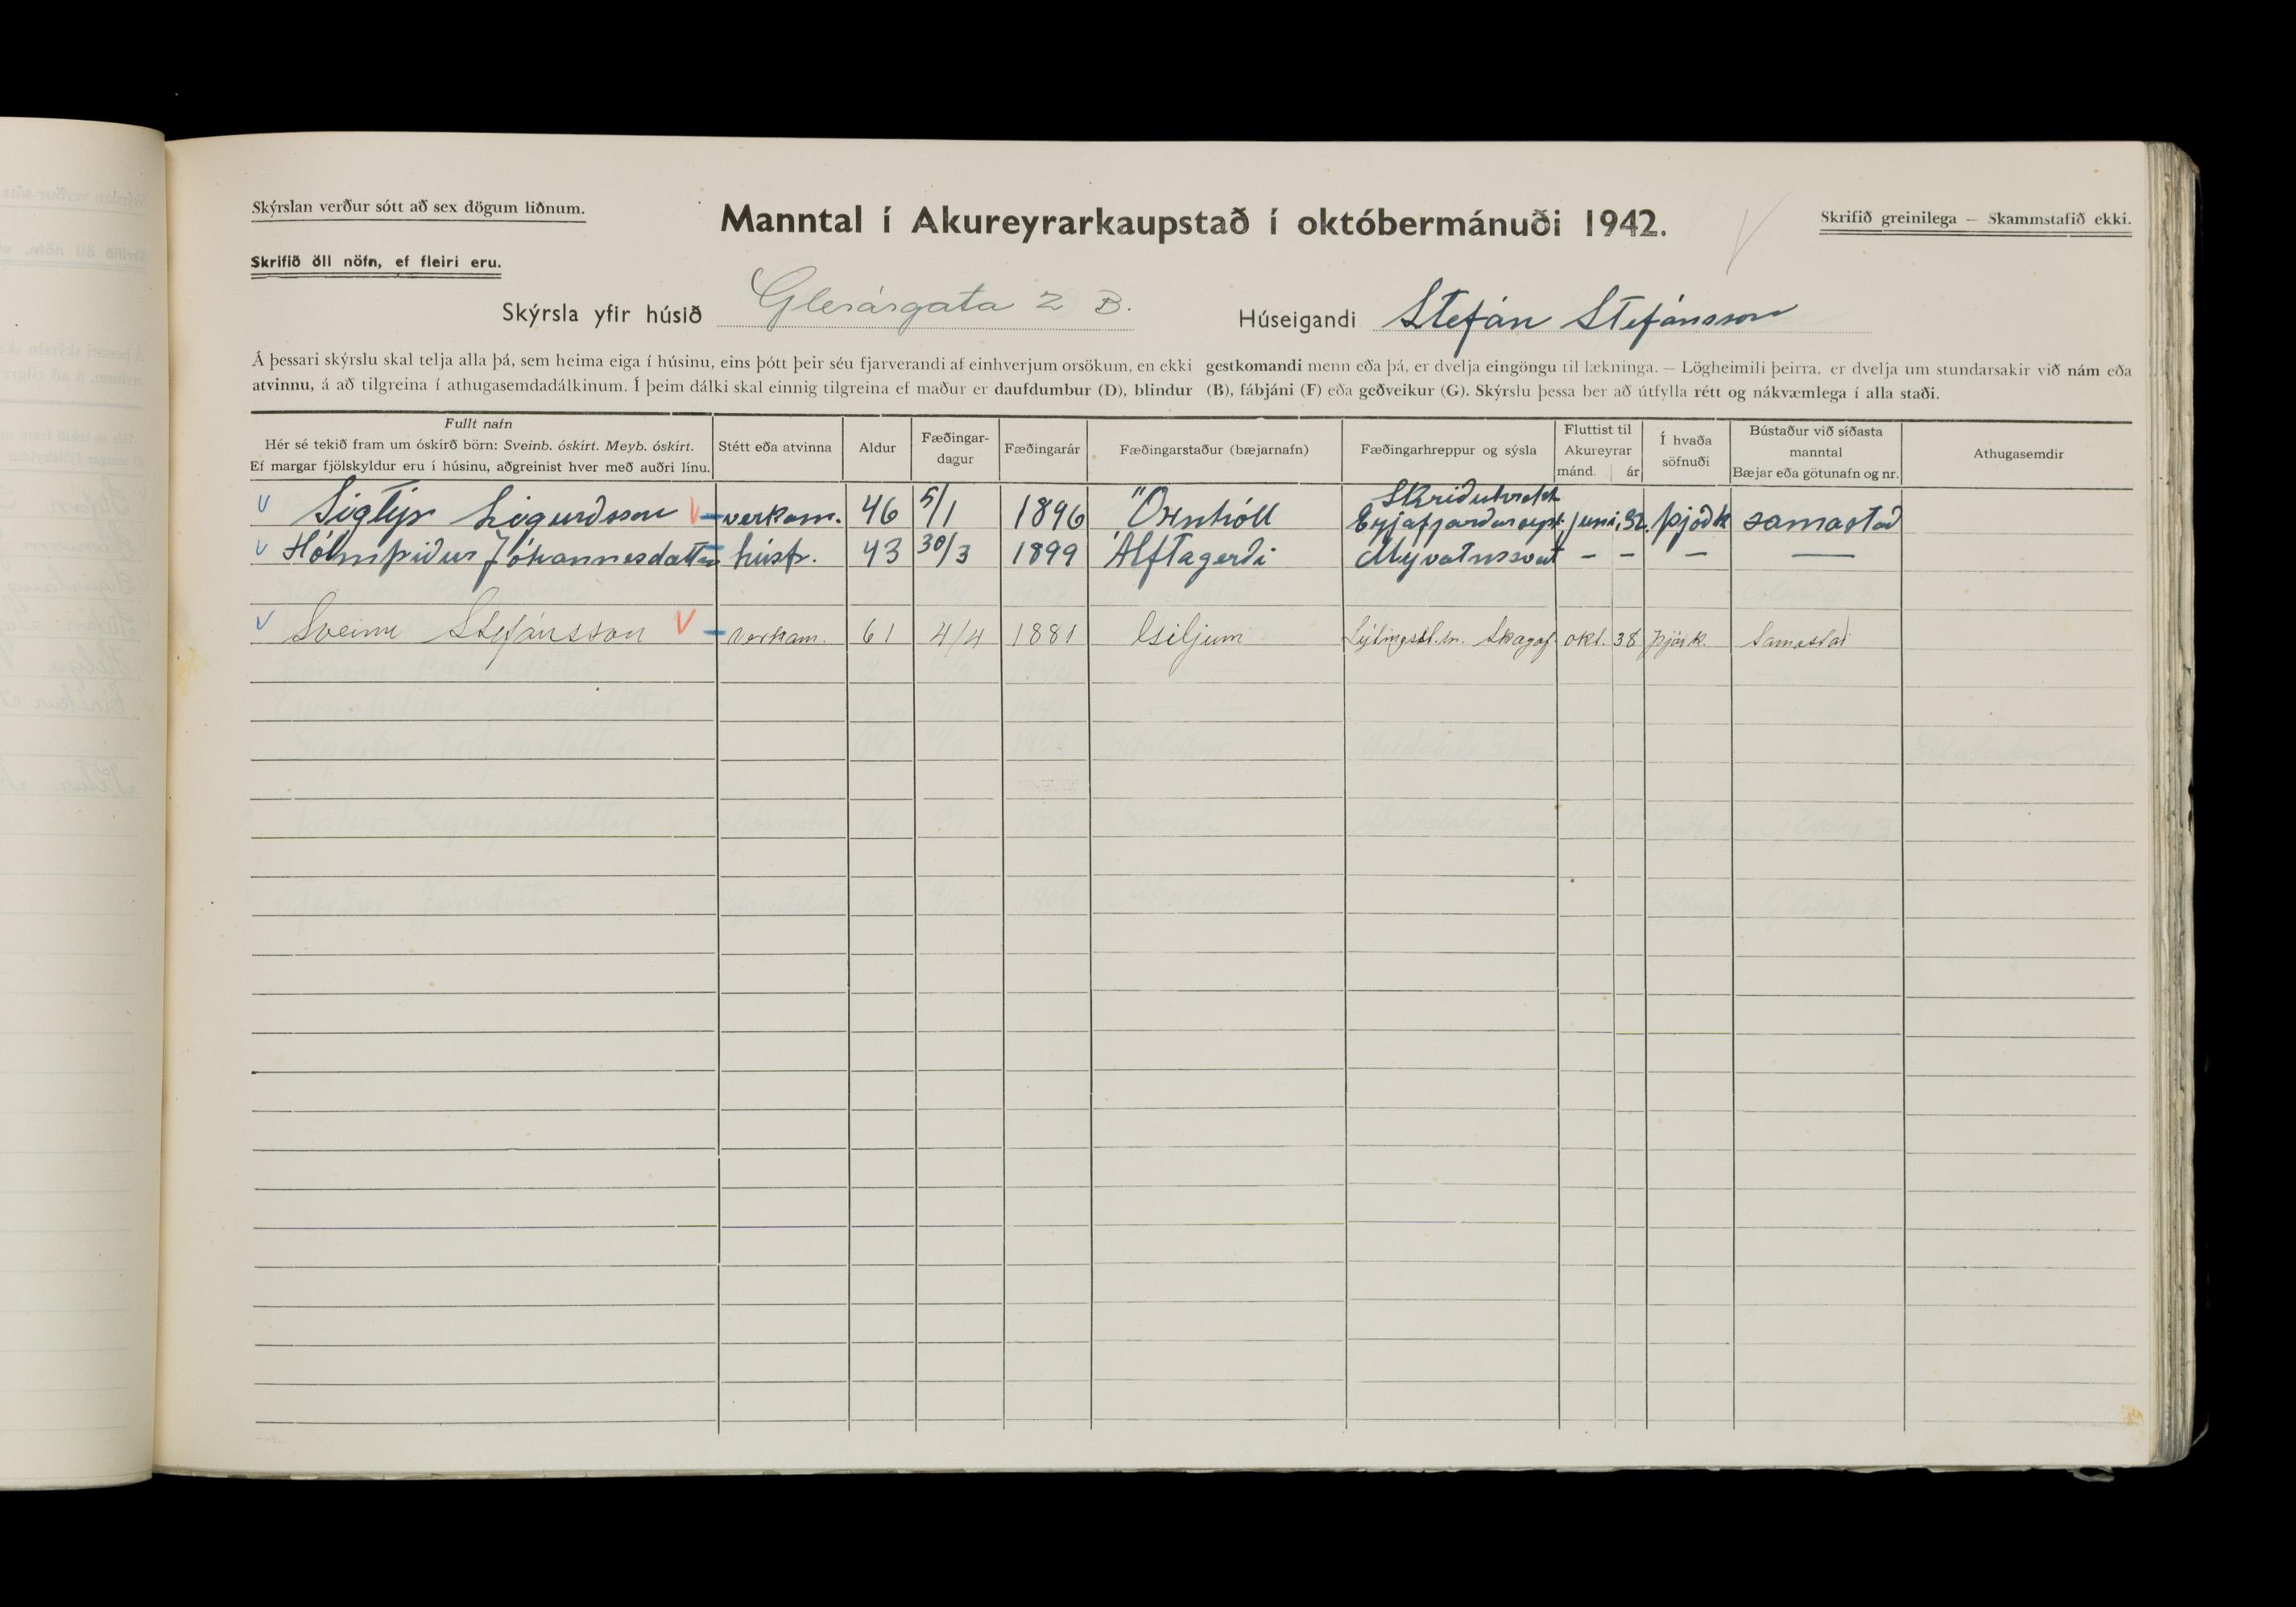 Skýrslan verður sótt að sex dögum liðnum.
Manntal í Akureyrarkaupstað í októbermánuði 1942.
Skrifið greinilega — Skammstafið ekki.
Skrifið öll nöfn, ef fleiri eru.
Skýrsla yfir húsið Glerárgata 2 B. Húseigandi Stefán Stefánsson
Á þessari skýrslu skal telja alla þá, sem heima eiga í húsinu, eins þótt þeir séu fjarverandi af einhverjum orsökum, en ekki gestkomandi menn eða þá, er dvelja eingöngu til lækninga. — Lögheimili þeirra, er dvelja um stundarsakir við nám eða
atvinnu, á að tilgreina í athugasemdadálkinum. Í þeim dálki skal einnig tilgreina ef maður er daufdumbur (D), blindur (B), fábjáni (F) eða geðveikur (G). Skýrslu þessa ber að útfylla rétt og nákvæmlega í alla staði.
Fullt nafn
Hér sé tekið fram um óskírð börn: Sveinb. óskírt. Meyb. óskírt.
Ef margar fjölskyldur eru í húsinu, aðgreinist hver með auðri línu.
Stétt eða atvinna
Aldur
Fæðingar-
dagur
Fæðingarár
Fæðingarstaður (bæjarnafn)
Fæðingarhreppur og sýsla
Fluttist til
Akureyrar
mánd. ár
Í hvaða
söfnuði
Bústaður við síðasta
manntal
Bæjar eða götunafn og nr.
Athugasemdir
V Sigtýr Sigurdsson V verkam. 46 5/1 1896 Öxnhóll Skriðuhrepp Eyjafjarðarsýsl. juni, 32. þjóðk samastað
V Hólmfríður Jóhannesdóttir húsfr. 43 30/3 1899 Álftagerði Mývatnssveit - - - —
V Sveinn Stefánsson V verkam. 61 4/4 1881 Lýtingsst.hr. Skagaf. okt. 38 þjóðk. Samastað